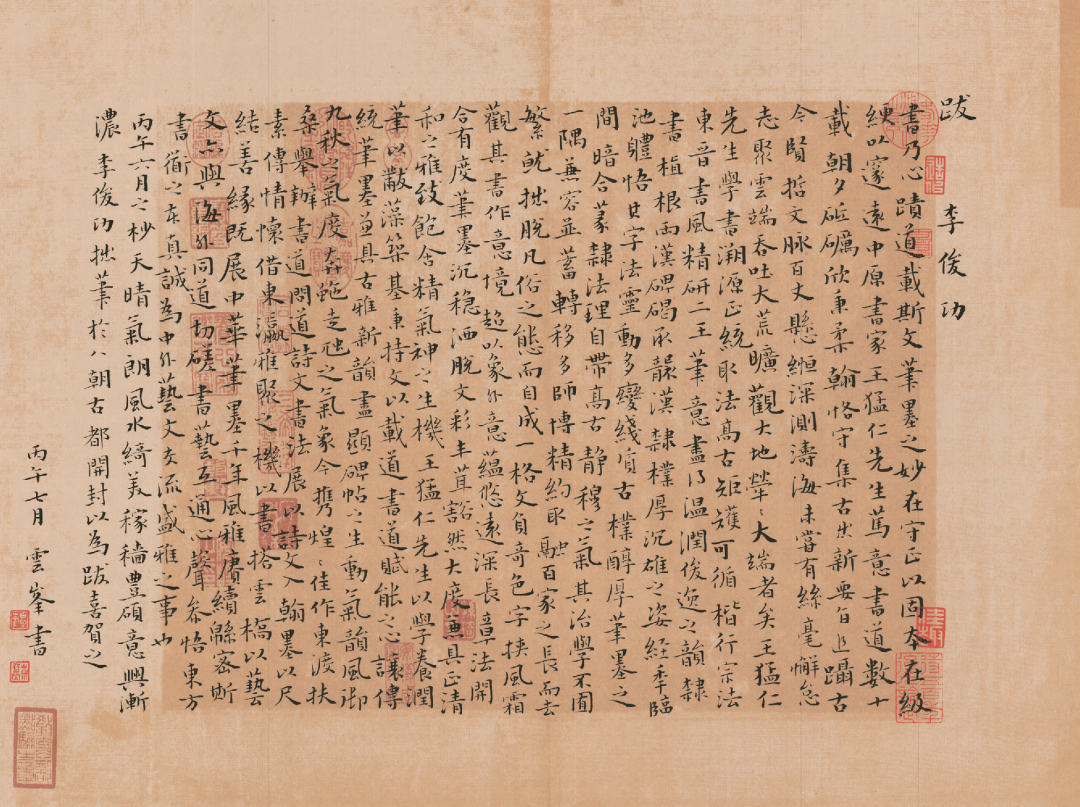 跋　李俊功
書乃心蹟道載斯文筆墨之妙在守正以固本在級
綆以邃遠中原書家王猛仁先生篤意書道數十
載朝夕砥礪欣秉柔翰恪守集古出新要旨追躡古
今賢哲文脉百丈懸縆深測濤海未嘗有絲毫懈怠
志聚雲端吞吐大荒曠觀大地犖犖大端者矣王猛仁
先生學書溯源正統取法高古矩矱可循楷行宗法
東晋書風精研二王筆意盡得温潤俊逸之韻隸
書植根兩漢碑碣承襲漢隸樸厚沉雄之姿經年臨
池體悟其字法靈動多變綫質古樸醇厚筆墨之
間暗合篆隸法理自帶高古静穆之氣其治學不囿
一隅兼容並蓄轉移多師博精約取融百家之長而去
繁就拙脱凡俗之態而自成一格文負奇色字挾風霜
觀其書作意境超以象外意蕴悠遠深長章法開
合有度筆墨沉穩洒脱文彩丰茸豁然大度兼具正清
和之雅致飽含精氣神之生機王猛仁先生以學養潤
筆以黻藻築基秉持文以載道書道賦能之心讓傳
統筆墨兼具古雅新韻盡顯碑帖之生動氣韻風御
九秋之氣度奔鮑走虺之氣象今攜煌煌佳作東渡扶
桑舉辦書道問道詩文書法展以詩文入翰墨以尺
素傳情懷借東瀛雅聚之機以書搭雲橋以藝
結善緣既展中華筆墨千年風雅賡續綿密斯
文亦與海外同道切磋書藝互通心聲參悟東方
書道之本真誠為中外藝文交流盛雅之事也
丙午六月之杪天晴氣朗風水綺美稼穡豐碩意興漸
濃李俊功拙筆於八朝古都開封以為跋喜賀之
丙午七月　雲峯書